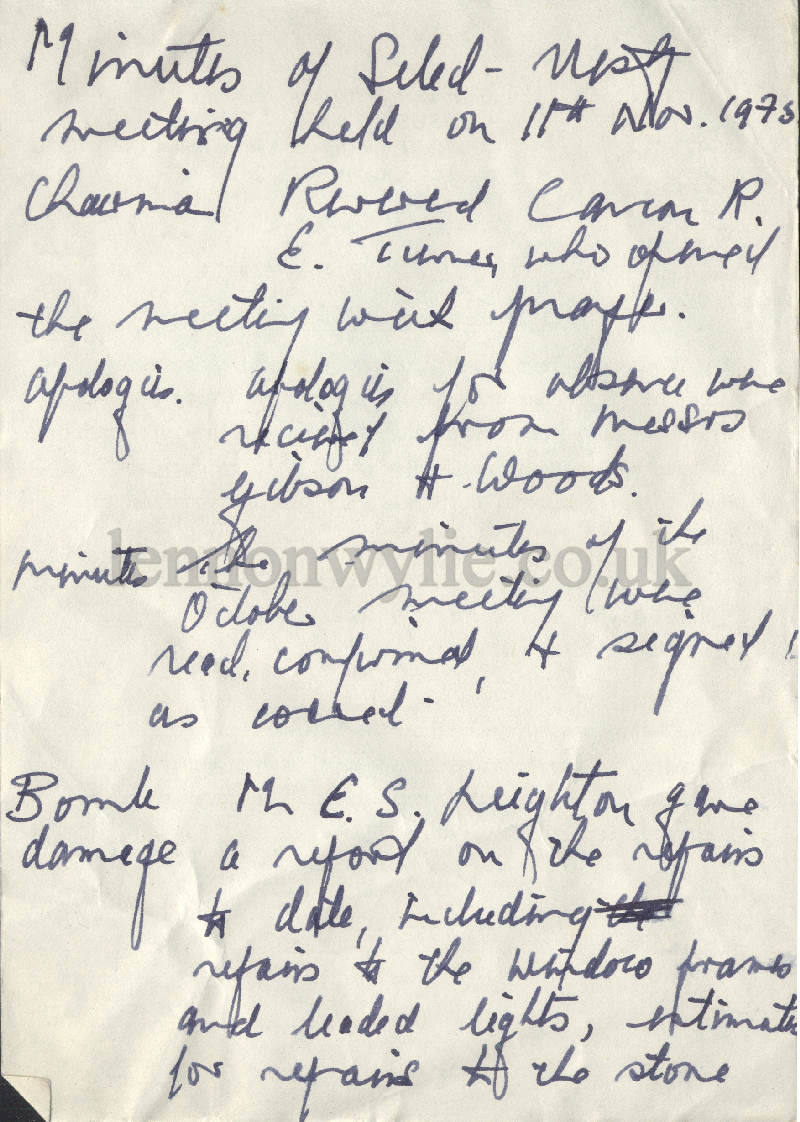 Minutes of Select Vestry
meeting held on 11th Nov. 1973
Chairman Reverend Canon R.
E. Turner, who opened
the meeting with prayer.
apologies. apologies for absence were
received from Messrs
Gibson & Woods.
minutes The minutes of the
October meeting were
read, confirmed, & signed
as correct.
Bomb Mr E. S. Leighton gave
damage a report on the repairs
to date, including
repairs to the window frames
and leaded lights, estimates
for repairs to the stone
lennonwylie.co.uk